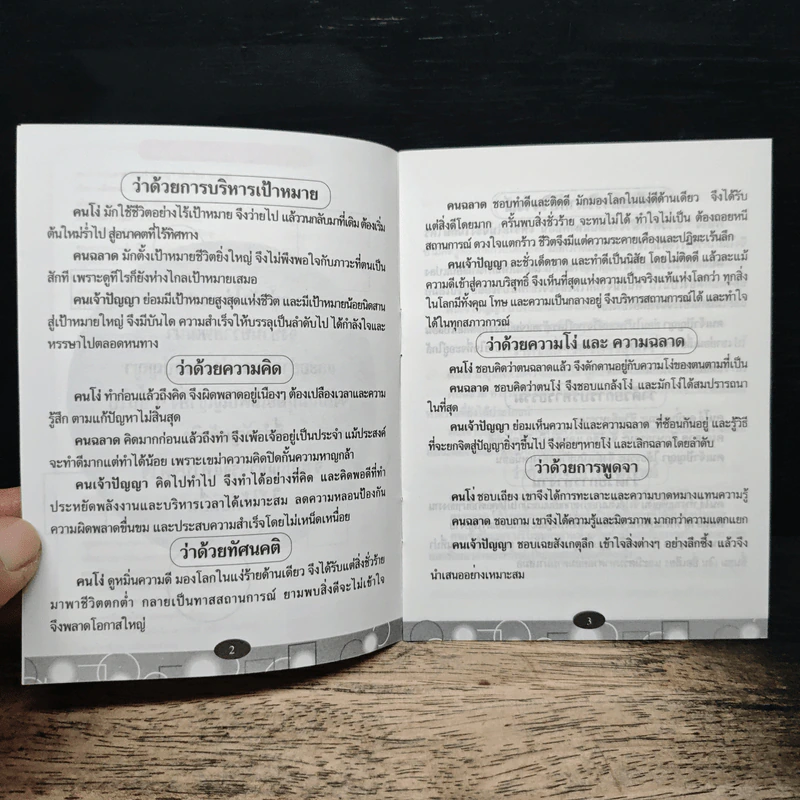 ว่าด้วยการบริหารเป้าหมาย
คนโง่ มักใช้ชีวิตอย่างไร้เป้าหมาย จึงว่ายไป แล้ววนกลับมาที่เดิม ต้องเริ่ม
ต้นใหม่ร่ำไป สู่อนาคตที่ไร้ทิศทาง
คนฉลาด มักตั้งเป้าหมายชีวิตยิ่งใหญ่ จึงไม่พึงพอใจกับภาวะที่ตนเป็น
สักที เพราะดูทีไรก็ยังห่างไกลเป้าหมายเสมอ
คนเจ้าปัญญา ย่อมมีเป้าหมายสูงสุดแห่งชีวิต และมีเป้าหมายน้อยนิดสาน
สู่เป้าหมายใหญ่ จึงมีบันได ความสำเร็จให้บรรลุเป็นลำดับไป ได้กำลังใจและ
หรรษาไปตลอดหนทาง
ว่าด้วยความคิด
คนโง่ ทำก่อนแล้วถึงคิด จึงผิดพลาดอยู่เนืองๆ ต้องเปลืองเวลาและความ
รู้สึก ตามแก้ปัญหาไม่สิ้นสุด
คนฉลาด คิดมากก่อนแล้วถึงทำ จึงเพ้อเจ้ออยู่เป็นประจำ แม้ประสงค์
จะทำดีมากแต่ทำได้น้อย เพราะเขม่าความคิดปิดกั้นความหาญกล้า
คนเจ้าปัญญา คิดไปทำไป จึงทำได้อย่างที่คิด และคิดพอดีที่ทำ
ประหยัดพลังงานและบริหารเวลาได้เหมาะสม ลดความหลอนป้องกัน
ความผิดพลาดขื่นขม และประสบความสำเร็จโดยไม่เหน็ดเหนื่อย
ว่าด้วยทัศนคติ
คนโง่ ดูหมิ่นความดี มองโลกในแง่ร้ายด้านเดียว จึงได้รับแต่สิ่งชั่วร้าย
มาพาชีวิตตกต่ำ กลายเป็นทาสสถานการณ์ ยามพบสิ่งดีจะไม่เข้าใจ
จึงพลาดโอกาสใหญ่
2
คนฉลาด ชอบทำดีและติดดี มักมองโลกในแง่ดีด้านเดียว จึงได้รับ
แต่สิ่งดีโดยมาก ครั้นพบสิ่งชั่วร้าย จะทนไม่ได้ ทำใจไม่เป็น ต้องถอยหนี
สถานการณ์ ดวงใจแตกร้าว ชีวิตจึงมีแต่ความระคายเคืองและปฏิฆะเร้นลึก
คนเจ้าปัญญา ละชั่วเด็ดขาด และทำดีเป็นนิสัย โดยไม่ติดดี แล้วละแม้
ความดีเข้าสู่ความบริสุทธิ์ จึงเห็นที่สุดแห่งความเป็นจริงแท้แห่งโลกว่า ทุกสิ่ง
ในโลกมีทั้งคุณ โทษ และความเป็นกลางอยู่ จึงบริหารสถานการณ์ได้ และทำใจ
ได้ในทุกสภาวการณ์
ว่าด้วยความโง่ และ ความฉลาด
คนโง่ ชอบคิดว่าตนฉลาดแล้ว จึงดักดานอยู่กับความโง่ของตนตามที่เป็น
คนฉลาด ชอบคิดว่าตนโง่ จึงชอบแกล้งโง่ และมักโง่ได้สมปรารถนา
ในที่สุด
คนเจ้าปัญญา ย่อมเห็นความโง่และความฉลาด ที่ซ้อนกันอยู่ และรู้วิธี
ที่จะยกจิตสู่ปัญญายิ่งๆขึ้นไป จึงค่อยๆหายโง่ และเลิกฉลาดโดยลำดับ
ว่าด้วยการพูดจา
คนโง่ ชอบเถียง เขาจึงได้การทะเลาะและความบาดหมางแทนความรู้
คนฉลาด ชอบถาม เขาจึงได้ความรู้และมิตรภาพ มากกว่าความแตกแยก
คนเจ้าปัญญา ชอบเฉยสังเกตุลึก เข้าใจสิ่งต่างๆ อย่างลึกซึ้ง แล้วจึง
นำเสนออย่างเหมาะสม
3